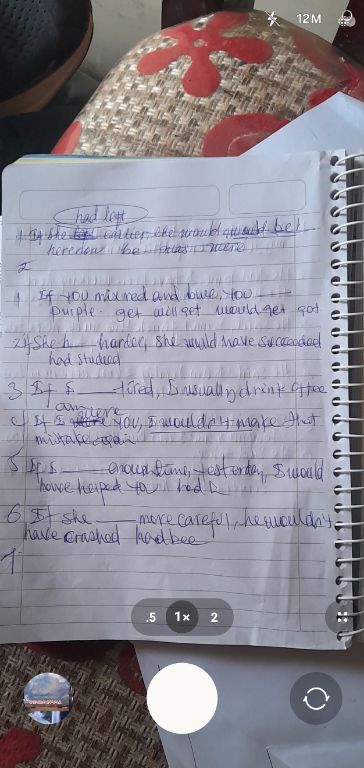 12M
had left
1 If she earlier, she would be
here now be was were
2
1 If you mix red and blue, you ___
purple. get will get would get got
2 If She h___ harder, she would have succeeded
had studied
3 If I ___ tired, I usually drink coffee
am
4 If I were you, I wouldn't make that
mistake again
5 If I ___ enough time, yesterday, I would
have helped you had
6 If she ___ more careful, he wouldn't
have crashed had bee
7
.5 1× 2